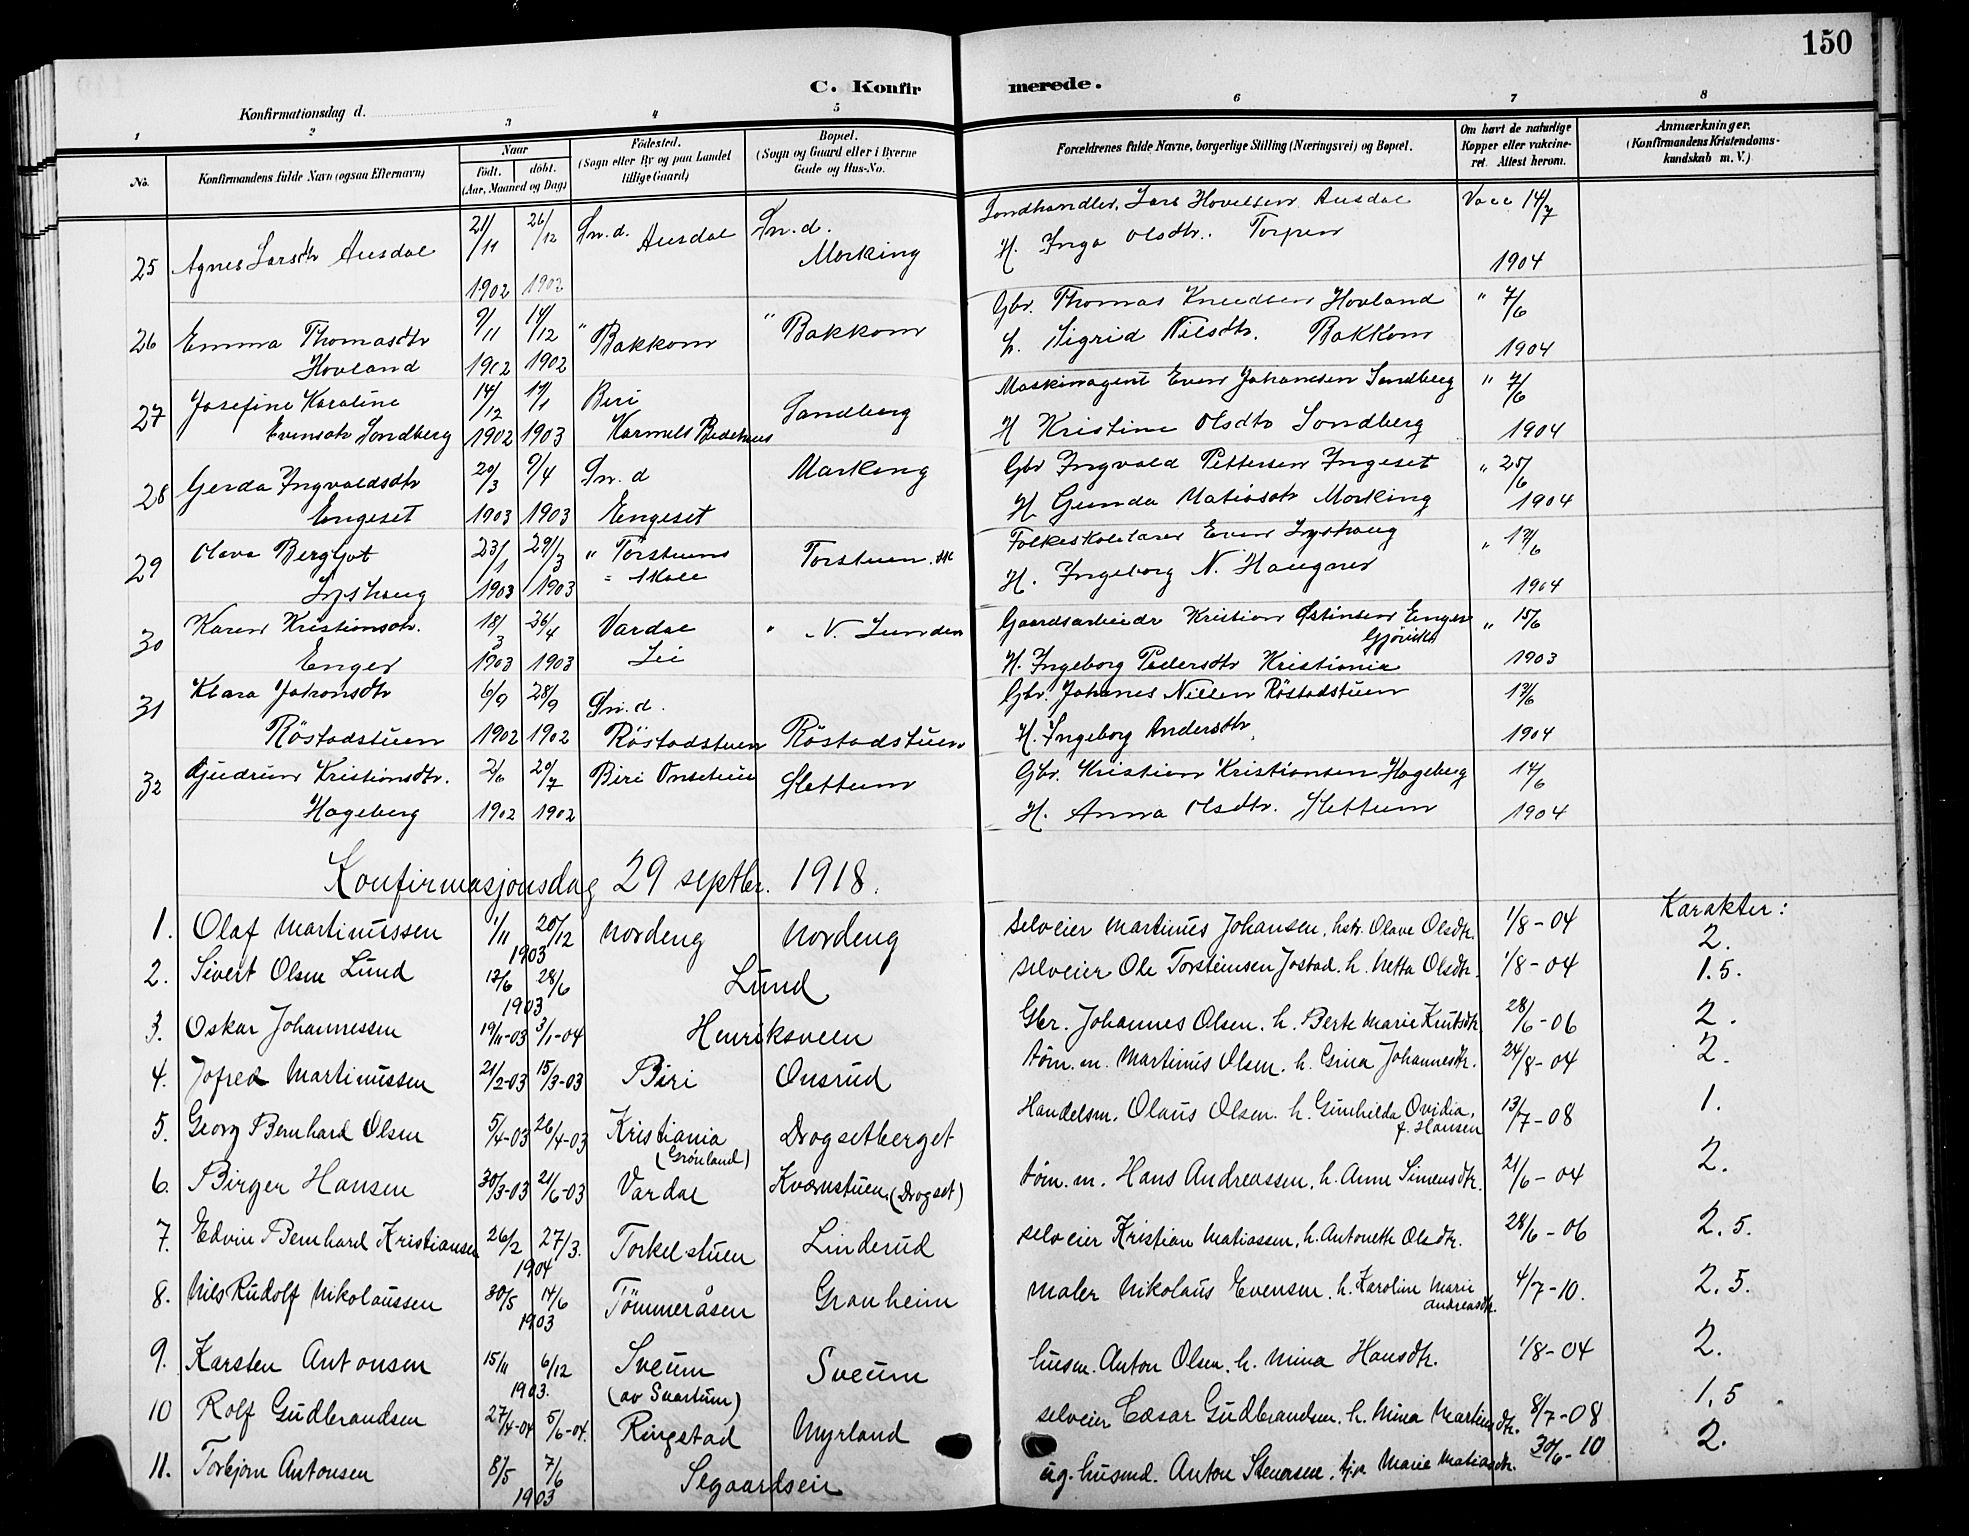 150
C. Konfirmerede.
Konfirmationsdag d.
1 2 3 4 5 6 7 8
No.
Konfirmandens fulde Navn (ogsaa Efternavn)
Naar
födt. döbt.
(Aar, Maaned og Dag)
Födested.
(Sogn eller By og paa Landet tillige Gaard)
Bopæl.
(Sogn og Gaard eller i Byerne Gade og Hus-No.
Forældrenes fulde Navne, borgerlige Stilling (Næringsvei) og Bopæl.
Om havt de naturlige Kopper eller vakcineret. Attest herom.
Anmærkninger.
(Konfirmandens Kristendomskundskab m. V.)
25 Agnes Larsdtr Ausdal 21/11 1902 26/12 1902 Sn.d. Ausdal Sn.d. Morking Landhandler Lars Hovelsen Ausdal
H. Inga Olsdtr. Torpen Vacc 14/7 1904
26 Emma Thomasdtr Hovland 9/11 1902 14/12 1902 " Bakkom " Bakkom Gbr. Thomas Knudsen Hovland
h. Sigrid Nilsdtr. Bakkom " 7/6 1904
27 Josefine Karoline Evensdtr Sandberg 14/12 1902 1903 Biri Karmels Bedehus Sandberg Maskinagent Even Johansen Sandberg
H Kristine Olsdtr Sandberg " 7/6 1904
28 Gerda Ingvaldsdtr Engeset 20/3 1903 9/4 1903 Sn.d Engeset Morking Gbr Ingvald Pettersen Ingeset
H Gunda Matiasdtr Morking " 25/6 1904
29 Olava Bergljot Lyshaug 23/1 1903 29/3 1903 " Torstuens skole Torstuen.sk Folkeskolelærer Even Lyshaug
H. Ingeborg N. Haugner " 13/6 1904
30 Karen Kristiansdtr. Enger 18/3 1903 26/4 1903 Vardal Lie " N. Lunden Gaardsarbeidr Kristian Østensen Enger Gjøvik
H. Ingeborg Pedersdtr Kristiania " 15/6 1903
31 Klara Johansdtr Röstadstuen 6/9 1902 28/9 1902 Sn.d. Röstadstuen Röstadstuen Gbr. Johanes Nilsen Röstadstuen
H. Ingeborg Andersdtr. 13/6 1904
32 Gudrun Kristiansdtr. Hageberg 2/6 1902 20/7 1902 Biri Slettum Gbr. Kristian Kristiansen Hageberg
H. Anna Olsdtr. Slettum 14/6 1904
Konfirmasjonsdag 29 septbr. 1918.
Karakter:
1. Olaf Martinussen 1/11 20/12 1903 Nordeng Nordeng selveier Martinus Johansen, hstr. Olave Olsdtr. 1/8-04 2.
2. Sivert Olsen Lund 17/6 28/6 1903 Lund selveier Ole Torsteinsen Jostad. h. Netta Olsdtr. 1/8-04 1.5.
3. Oskar Johannessen 19/11-03 3/1-04 Henriksveen Gbr. Johannes Olsen. h. Berte Marie Knutsdtr. 28/6-06 2.
4. Jofred Martinussen 21/2-03 15/3-03 Biri Onsrud tøm.m. Martinus Olsen. h. Gina Johannesdtr. 24/8-04 2.
5. Georg Bernhard Olsen 5/4-03 26/4-03 Kristiania (Grønland) Drogsetberget Handelsm. Olaus Olsen. h. Gunhilda Ovidia, f. Hansen 13/7-08 1.
6. Birger Hansen 30/3-03 21/6-03 Vardal Kværnstuen (Drogset) tøm.m. Hans Andreassen, h. Anne Simensdtr. 21/6-04 2.
7. Edvin Bernhard Kristiansen 26/2 27/3. 1904 Torkelstuen Linderud selveier Kristian Matiassen, h. Antonette Olsdtr. 28/6-06 2.5.
8. Nils Rudolf Nikolaussen 30/5 14/6 1903 Tömmeråsen Granheim maler Nikolaus Evensen. h. Karoline Marie Andreasdtr. 4/7-10. 2.5.
9. Karsten Antonsen 15/11 6/12 1903. Sveum (av Svartum) Sveum husm. Anton Olsen. h. Mina Hansdtr. 1/8-04 2.
10 Rolf Gudbrandsen 27/4-04 5/6-04. Ringstad Myrland selveier Cæsar Gudbrandsen. h. Mina Martinsdtr. 8/7-08 1,5
11. Torbjørn Antonsen 8/5 7/6 1903 Segaardseie ug. husmd. Anton Stenersen, Marie Matiasdtr. 30/6-10 2.